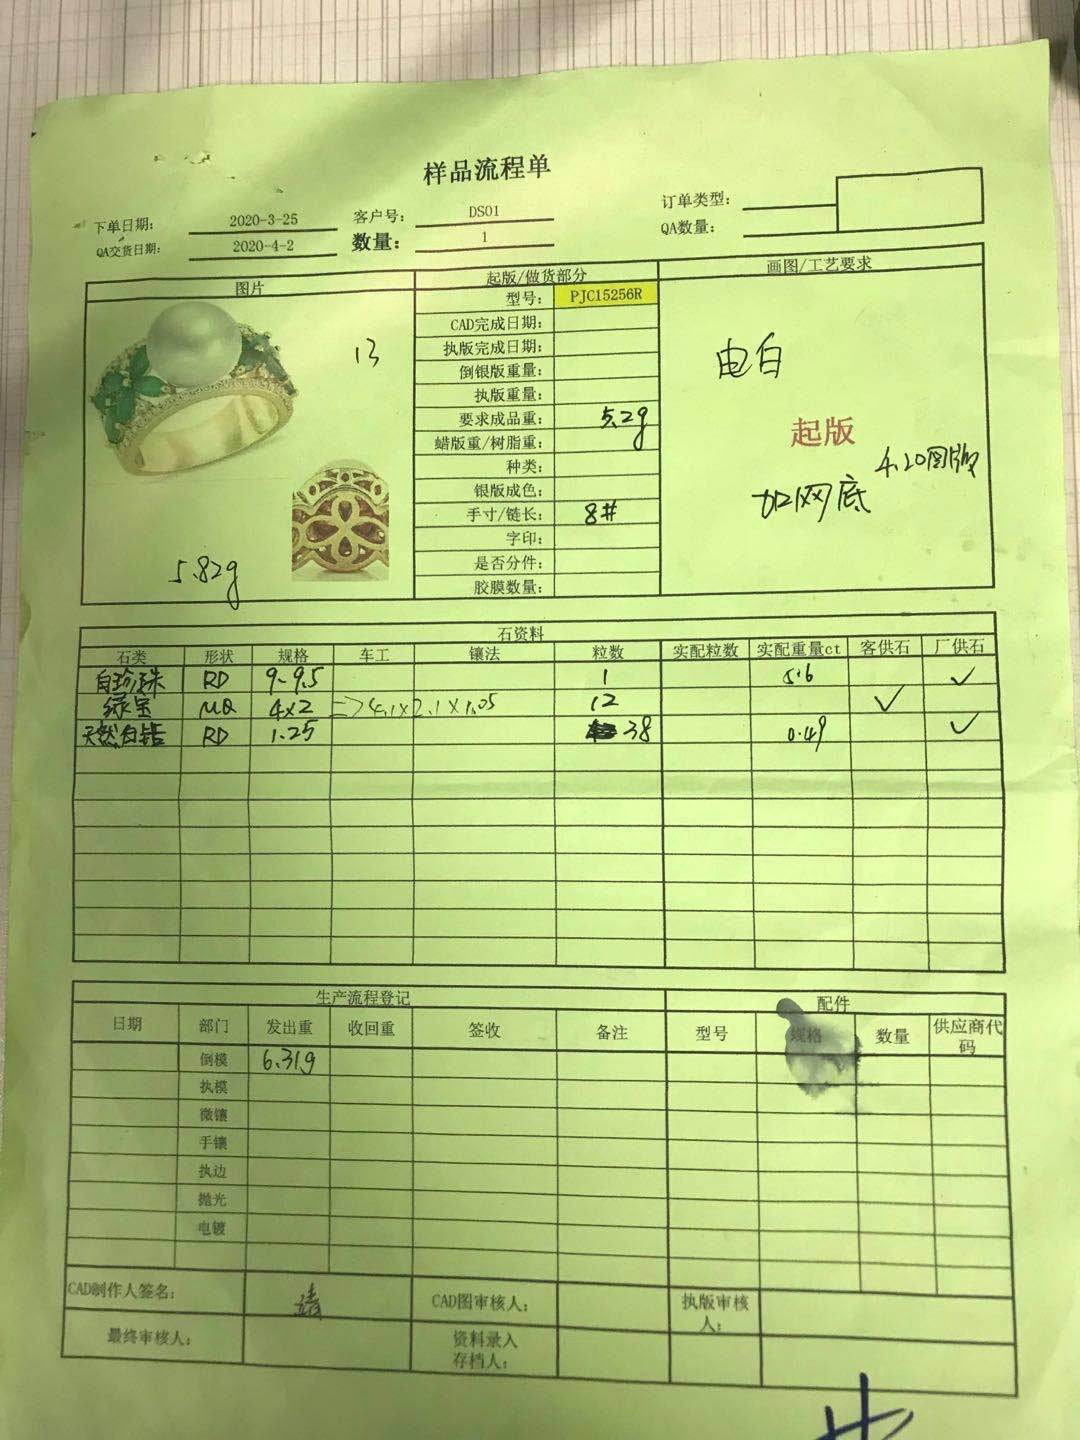 样品流程单
下单日期： 2020-3-25 客户号： DS01 订单类型：
QA交货日期： 2020-4-2 数量： 1 QA数量：
图片 起版/做货部分 画图/工艺要求
型号： PJC15256R
CAD完成日期：
执版完成日期：
倒银版重量：
执版重量：
要求成品重： 5.2g
蜡版重/树脂重：
种类：
银版成色：
手寸/链长： 8#
字印：
是否分件：
胶膜数量：
13
5.82g
电白
起版
4.20图版
加网底
石资料
石类 形状 规格 车工 镶法 粒数 实配粒数 实配重量ct 客供石 厂供石
白珍珠 RD 9-9.5 1 5.6 ✓
绿宝 MQ 4x2 => 4.1x2.1x1.05 12 ✓
天然白钻 RD 1.25 38 0.49 ✓
生产流程登记 配件
日期 部门 发出重 收回重 签收 备注 型号 规格 数量 供应商代码
倒模 6.31g
执模
微镶
手镶
执边
抛光
电镀
CAD制作人签名： CAD图审核人： 执版审核人：
最终审核人： 资料录入存档人：